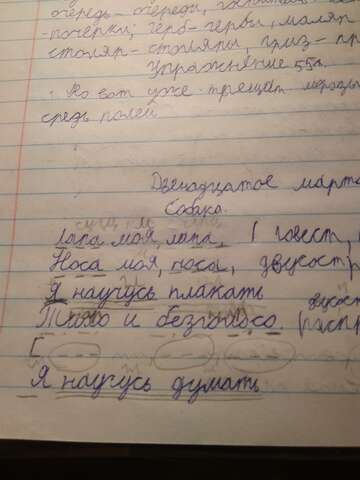 очередь – очереди,
почерки, герб – гербы, маляр
столяр – столяры, приз – пр
Упражнение 55а.
Но вот уже трещат морозы
средь полей
Двенадцатое марта
Собака.
Лапа моя, лапа, (повест,
Носа моя, носа, двусост
Я научусь плакать
Тихо и безголосо. распр
[
Я научусь думать